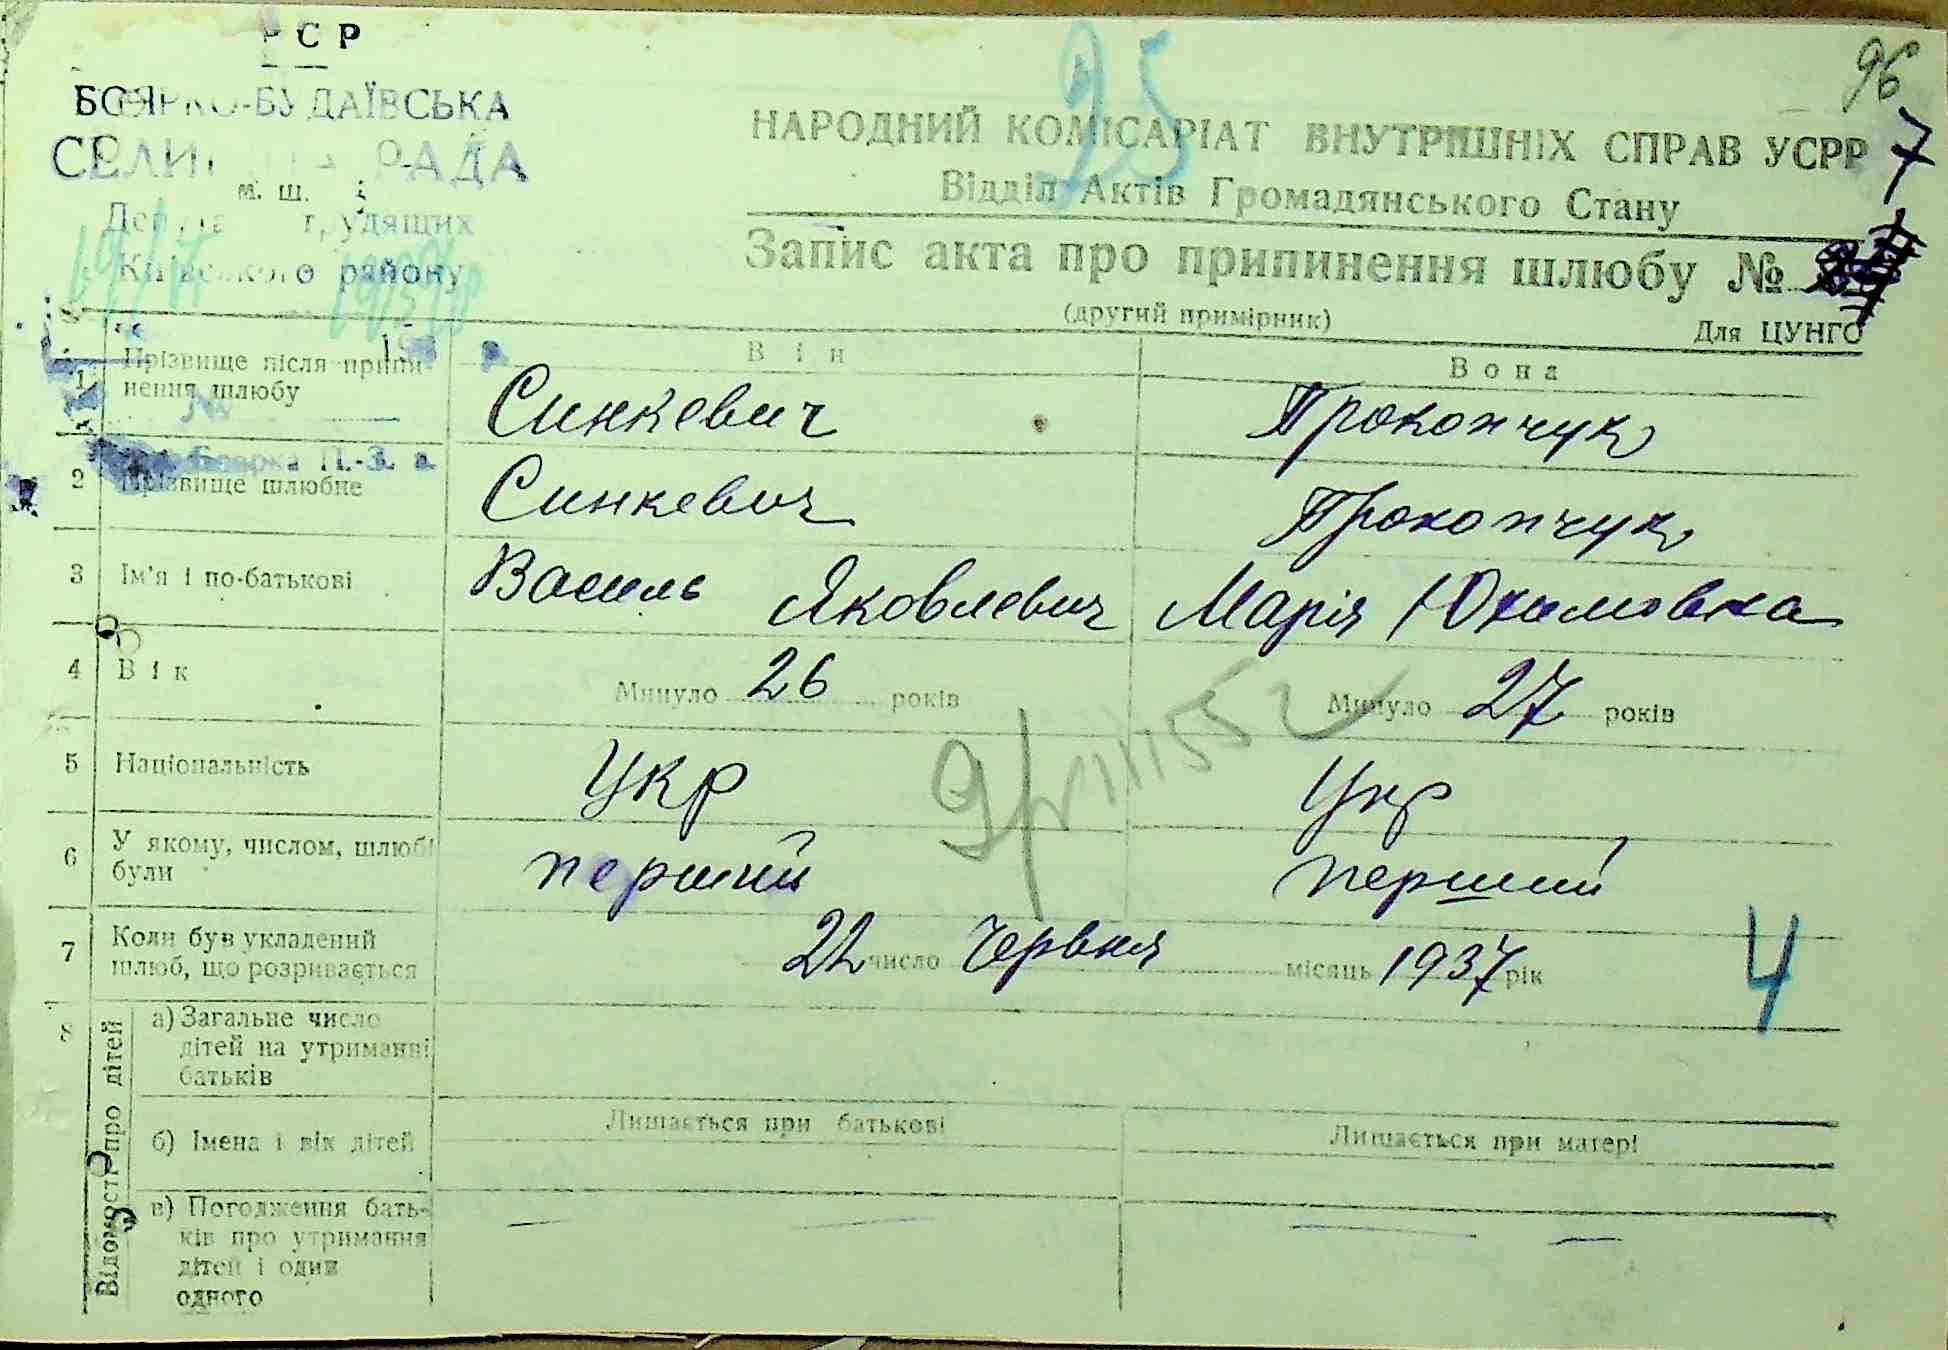 РСР
БОЯРКО-БУДАЇВСЬКА
РАДА
Київського району
25
96
НАРОДНИЙ КОМІСАРІАТ ВНУТРІШНІХ СПРАВ УСРР
7
Відділ Актів Громадянського Стану
Запис акта про припинення шлюбу №
(другий примірник)
Для ЦУНГО
Він
Вона
1 Прізвище після припинення шлюбу
Синкевич
Прокопчук
Боярка П.-З. з.
2 Прізвище шлюбне
Синкевич
Прокопчук
3 Ім'я і по-батькові
Василь Яковлевич
Марія Юхимовна
4 Вік
Минуло 26 років
Минуло 27 років
5 Національність
Укр
Укр
6 У якому, числом, шлюбі були
перший
перший
7 Коли був укладений шлюб, що розривається
22 число Червня місяць 1937 рік
4
8 Відомості про дітей
а) Загальне число дітей на утриманні батьків
б) Імена і вік дітей
Лишається при батькові
Лишається при матері
в) Погодження батьків про утримання дітей і один одного